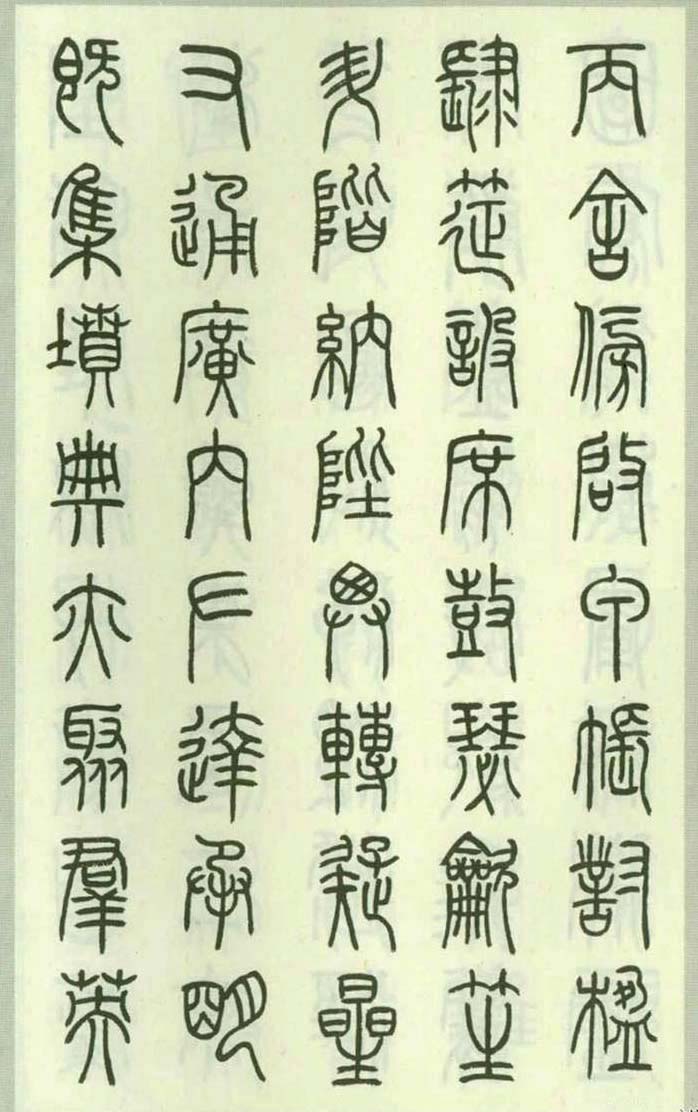 丙舍傍啟甲帳對楹
肆筵設席鼓瑟龡笙
升階納陛弁轉疑星
右通廣內左達承明
既集墳典亦聚群英